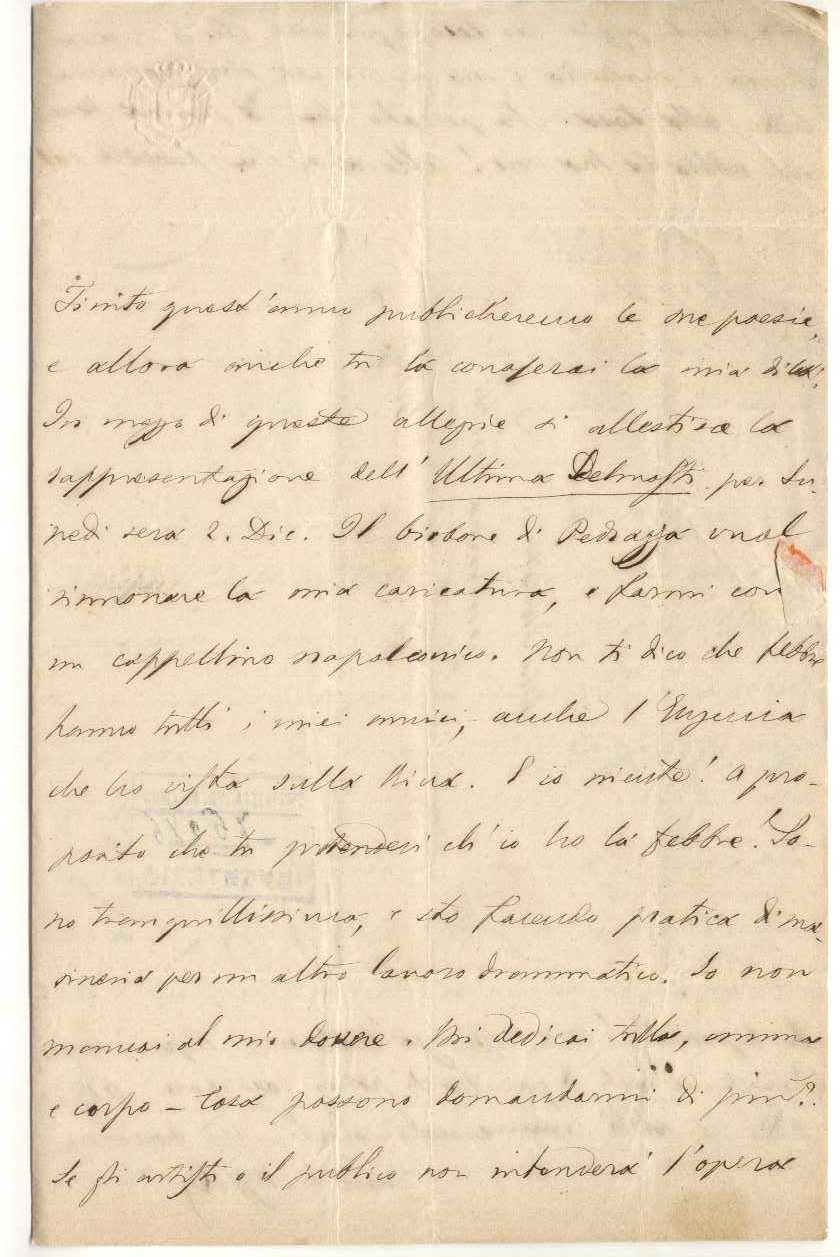 Finito quest'anno publicheremo le sue poesie,
e allora anche tu la conoscerai la mia
In mezzo di queste allegrie si allestisce la
rappresentazione dell'Ultima Delmasti per Lu-
nedì sera 2. Dic. Il birbone di Pedrazza vuol
rinnovare la mia caricatura, e farmi con
un cappellino napoleonico. Non ti dico che febbre
hanno tutti i miei amici, anche l'Eugenia
che ho vista sulla Riva. E io niente! A pro-
posito che tu pretendevi ch'io ho la febbre! So-
no tranquillissima, e sto facendo pratica di ma-
rineria per un altro lavoro drammatico. Io non
mancai al mio dovere. Mi dedicai tutta, anima
e corpo – Cosa possono domandarmi di più?
Se gli artisti o il publico non intenderà l'opera